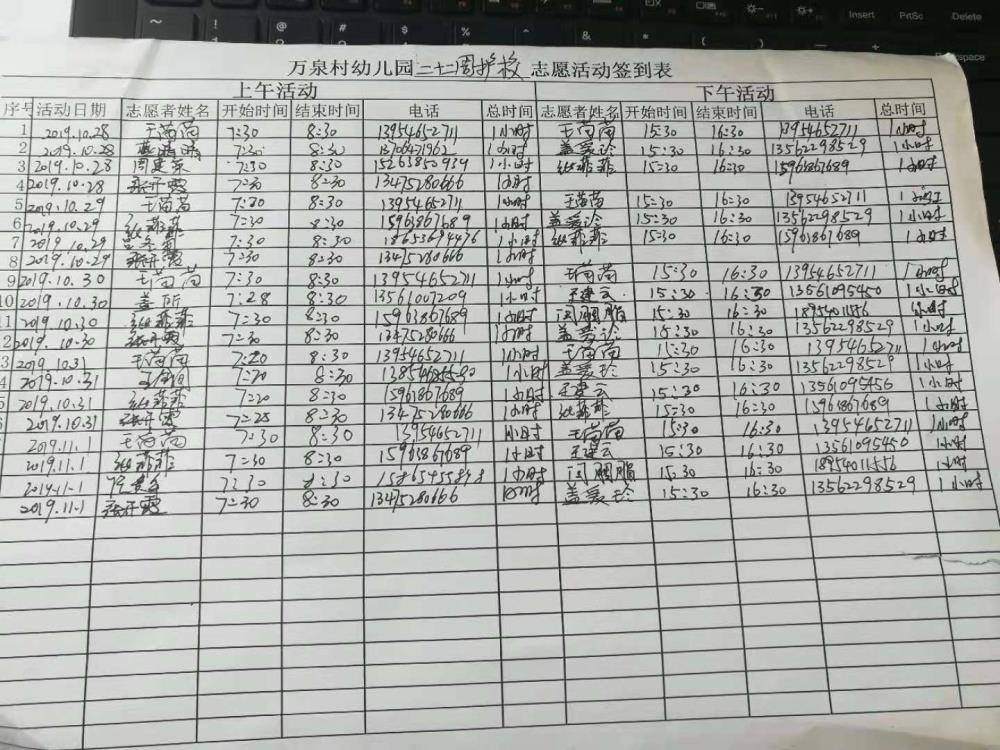 Insert PrtSc Delete
万泉村幼儿园二十二周护校志愿活动签到表
上午活动 下午活动
序号 活动日期 志愿者姓名 开始时间 结束时间 电话 总时间 志愿者姓名 开始时间 结束时间 电话 总时间
1 2019.10.28 王苗苗 7:30 8:30 13954652711 1小时 王苗苗 15:30 16:30 13954652711 1小时
2 2019.10.28 7:30 8:30 13706471962 1小时 盖爱玲 15:30 16:30 13562298529 1小时
3 2019.10.28 周建荣 7:30 8:30 15263850939 1小时 张菲菲 15:30 16:30 15961867689 1小时
4 2019.10.28 张开霞 7:30 8:30 13475280666 1小时
5 2019.10.29 王苗苗 7:20 8:30 13954652711 1小时 王苗苗 15:30 16:30 13954652711 1小时
6 2019.10.29 张菲菲 7:30 8:30 15961867689 1小时 盖爱玲 15:30 16:30 13562298529 1小时
7 2019.10.29 7:30 8:30 18653694476 1小时 张菲菲 15:30 16:30 15961867689 1小时
8 2019.10.29 张开霞 7:30 8:30 13475280666 1小时
9 2019.10.30 王苗苗 7:30 8:30 13954652711 1小时 王苗苗 15:30 16:30 13954652711 1小时
10 2019.10.30 7:28 8:30 13561007209 1小时 王建云 15:30 16:30 13561095450 1小时
11 2019.10.30 张菲菲 7:30 8:30 15963867689 1小时 闫胭脂 15:30 16:30 1小时
2 2019.10.30 张开霞 7:30 8:30 13475280666 1小时 盖爱玲 15:30 16:30 13562298529 1小时
3 2019.10.31 王苗苗 7:20 8:30 13954652711 1小时 王苗苗 15:30 16:30 13954652711 1小时
4 2019.10.31 7:20 8:30 1小时 盖爱玲 15:30 16:30 13562298529 1小时
5 2019.10.31 张菲菲 7:20 8:30 15961867689 1小时 王建云 15:30 16:30 13561095456 1小时
6 2019.10.31 张开霞 7:25 8:30 13475280666 1小时 张菲菲 15:30 16:30 15961867689 1小时
2019.11.1 王苗苗 7:30 8:30 13954652711 1小时 王苗苗 15:30 16:30 13954652711 1小时
2019.11.1 张菲菲 7:30 8:30 15963867689 1小时 王建云 15:30 16:30 13561095450 1小时
7:30 8:30 1小时 闫胭脂 15:30 16:30 18954011556 1小时
2019.11.1 张开霞 7:30 8:30 13475280666 1小时 盖爱玲 15:30 16:30 13562298529 1小时